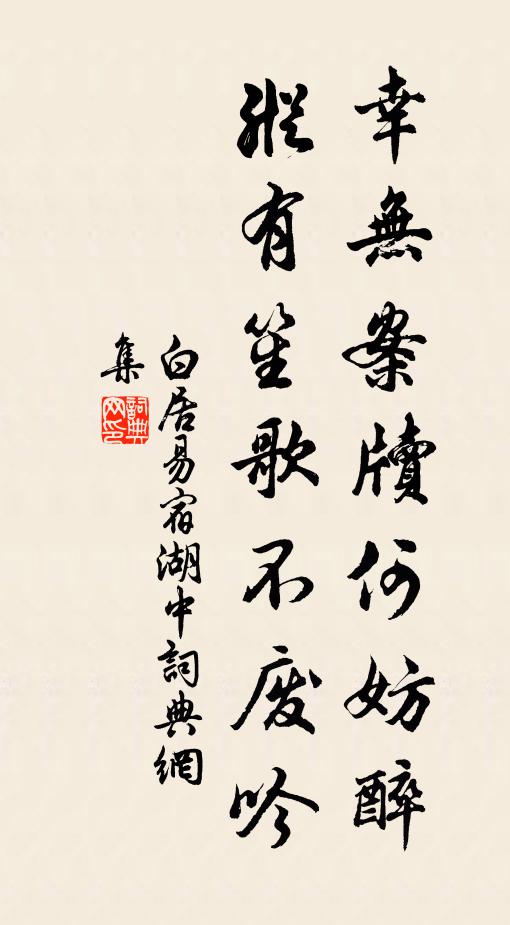 幸無案牘何妨醉
縱有笙歌不廢吟
白居易宿湖中詞典網
集
詞典
网印